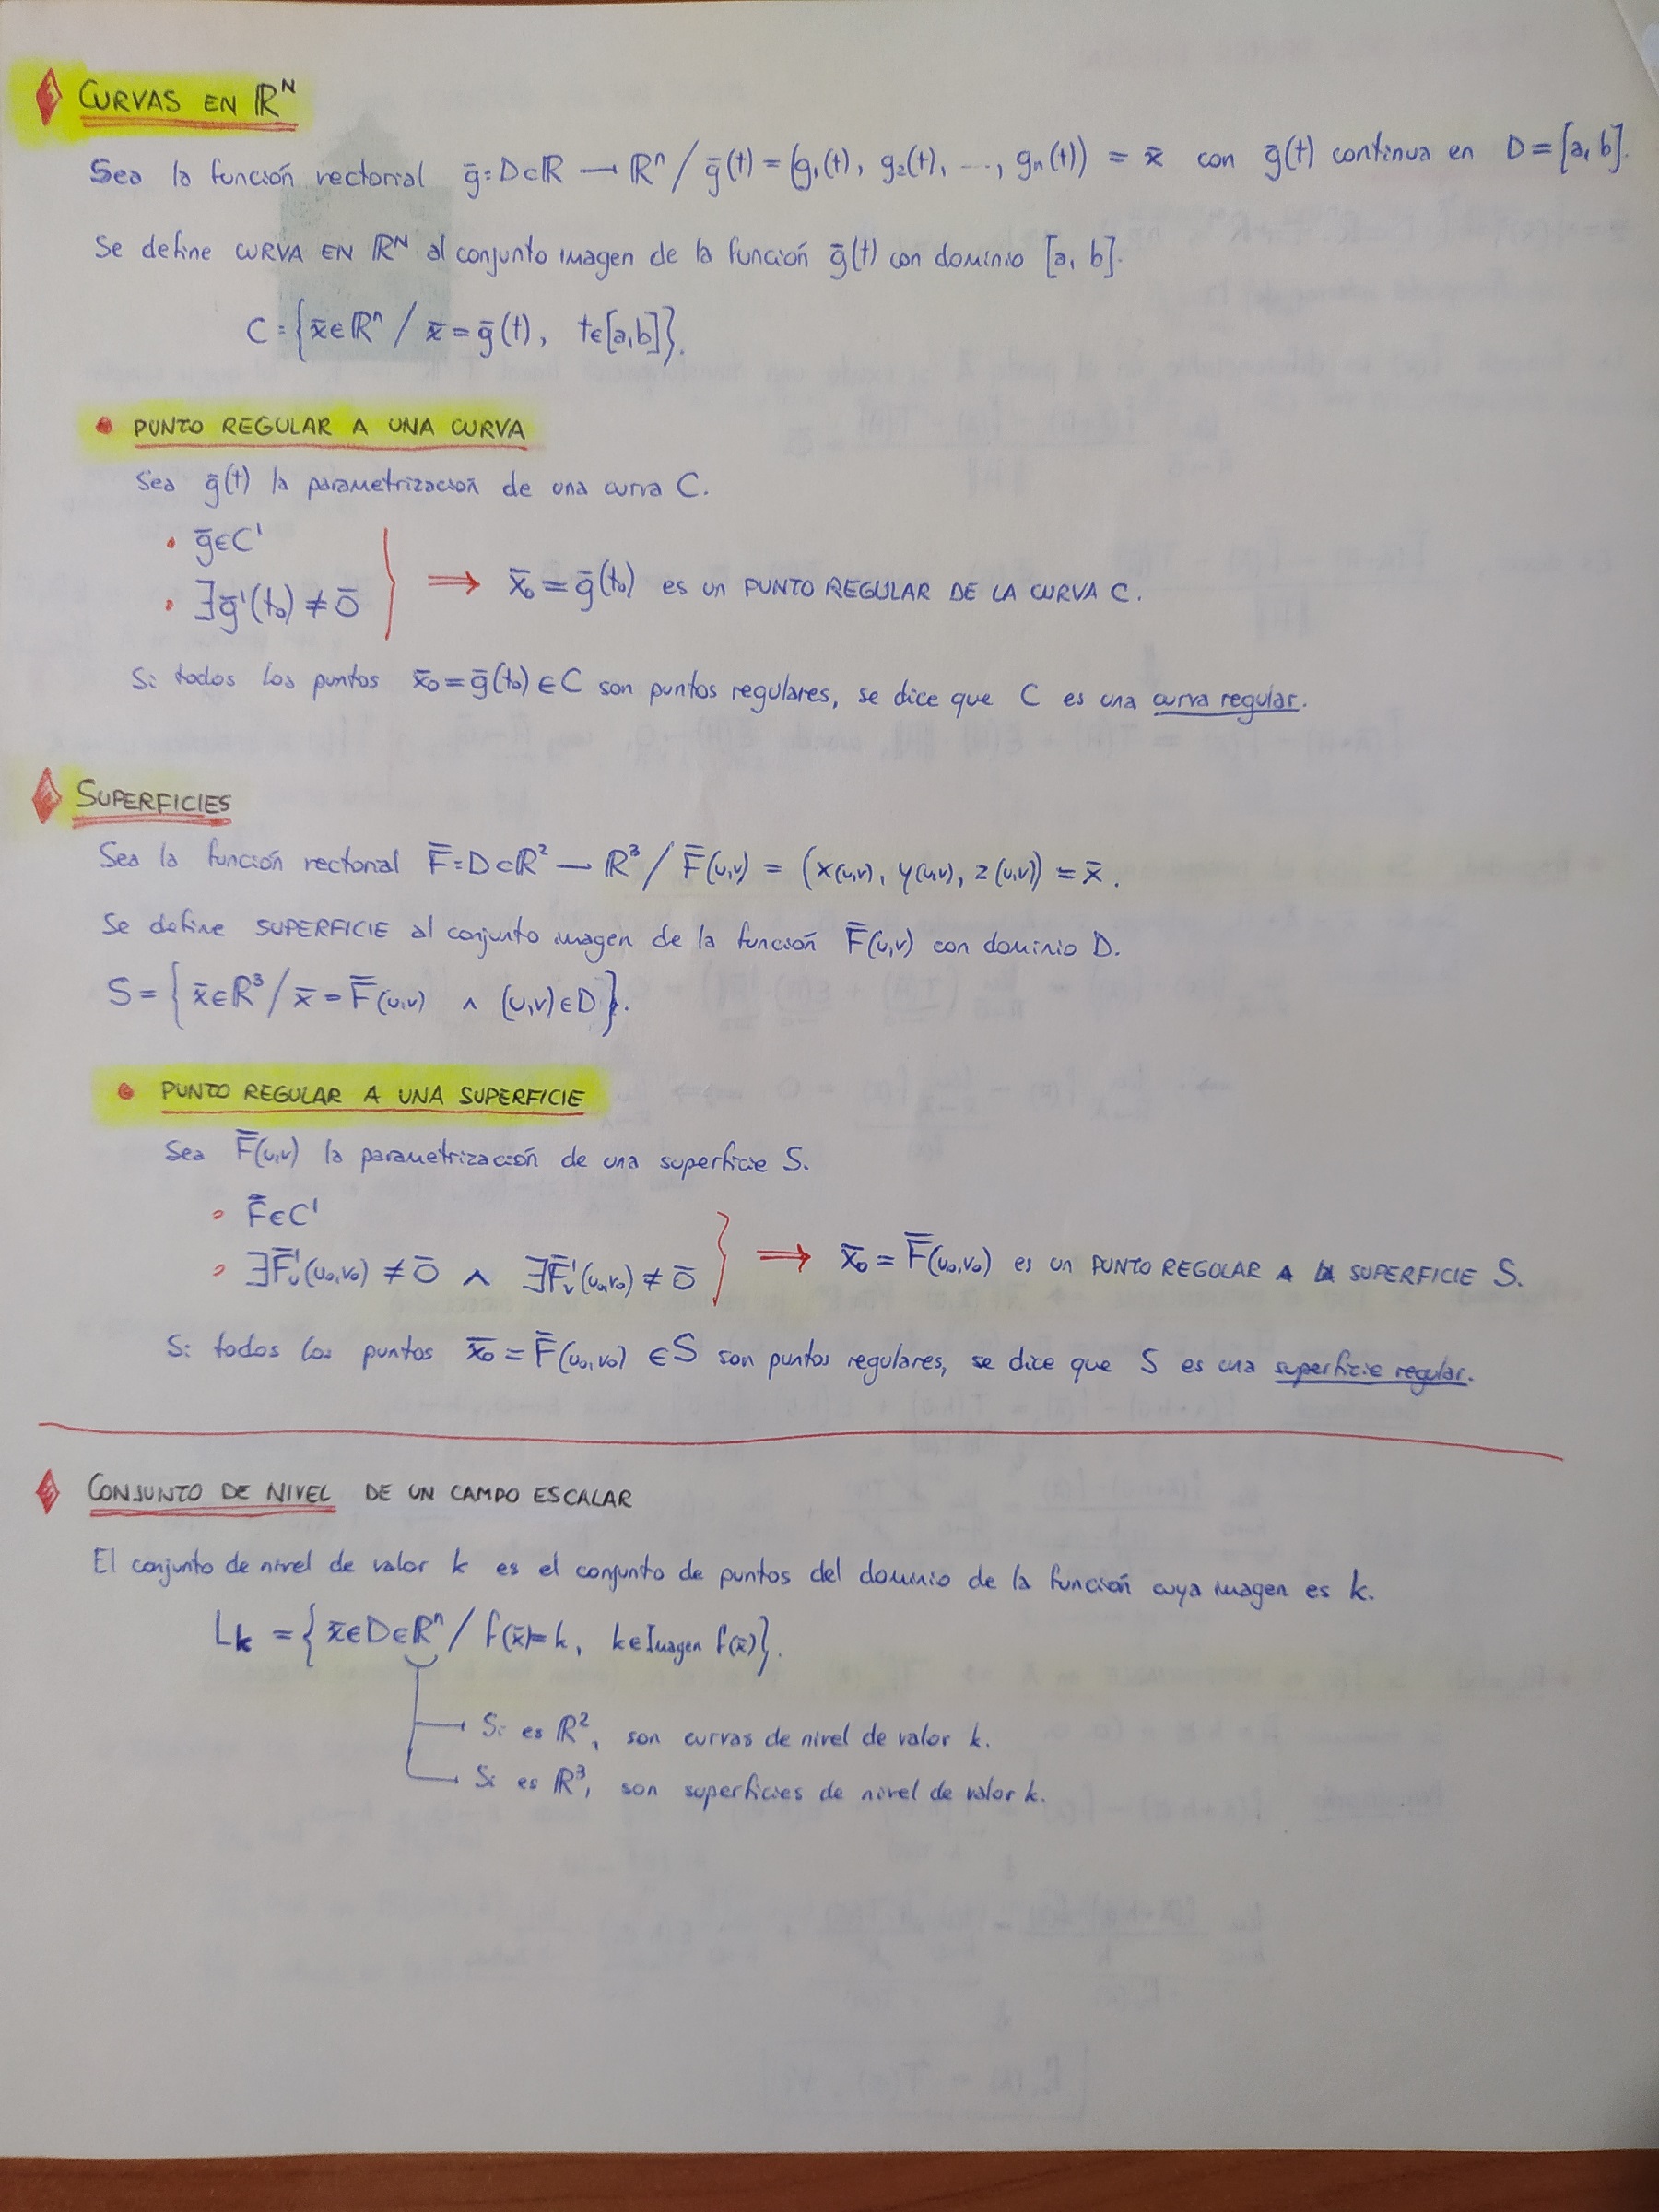 CURVAS EN ℝᴺ
Sea la función vectorial ḡ: D⊂ℝ → ℝⁿ / ḡ(t) = (g₁(t), g₂(t), ..., gₙ(t)) = x̄ con ḡ(t) continua en D = [a, b].
Se define CURVA EN ℝᴺ al conjunto imagen de la función ḡ(t) con dominio [a, b].
C = {x̄∈ℝⁿ / x̄ = ḡ(t), t∈[a,b]}.
• PUNTO REGULAR A UNA CURVA
Sea ḡ(t) la parametrización de una curva C.
• ḡ∈C¹
• ∃ḡ'(t₀) ≠ 0̄ } ⟹ x̄₀ = ḡ(t₀) es un PUNTO REGULAR DE LA CURVA C.
Si todos los puntos x̄₀ = ḡ(t₀) ∈ C son puntos regulares, se dice que C es una curva regular.
SUPERFICIES
Sea la función vectorial F̄: D⊂ℝ² → ℝ³ / F̄(u,v) = (x(u,v), y(u,v), z(u,v)) = x̄.
Se define SUPERFICIE al conjunto imagen de la función F̄(u,v) con dominio D.
S = {x̄∈ℝ³ / x̄ = F̄(u,v) ∧ (u,v)∈D}.
• PUNTO REGULAR A UNA SUPERFICIE
Sea F̄(u,v) la parametrización de una superficie S.
• F̄∈C¹
• ∃F̄'ᵤ(u₀,v₀) ≠ 0̄ ∧ ∃F̄'ᵥ(u₀,v₀) ≠ 0̄ } ⟹ x̄₀ = F̄(u₀,v₀) es un PUNTO REGULAR A LA SUPERFICIE S.
Si todos los puntos x̄₀ = F̄(u₀,v₀) ∈ S son puntos regulares, se dice que S es una superficie regular.
CONJUNTO DE NIVEL DE UN CAMPO ESCALAR
El conjunto de nivel de valor k es el conjunto de puntos del dominio de la función cuya imagen es k.
Lk = {x̄∈D∈ℝⁿ / f(x̄)=k, k∈Imagen f(x̄)}.
Si es ℝ², son curvas de nivel de valor k.
Si es ℝ³, son superficies de nivel de valor k.